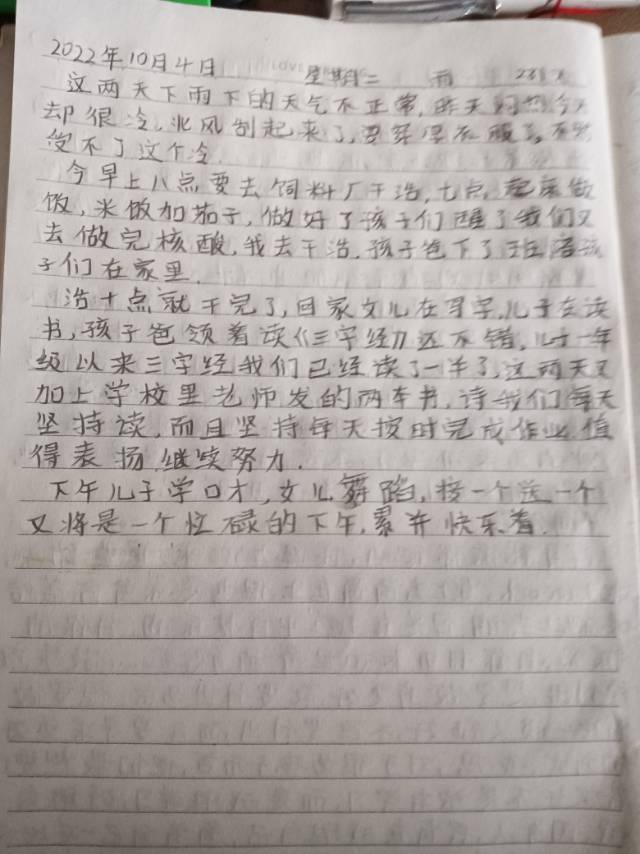 2022年10月4日 星期二 雨 231天
这两天下雨下的天气不正常,昨天闷热今天
却很冷,北风刮起来了,要穿厚衣服了,不然
受不了这个冷.
今早上八点要去饲料厂干活,七点起床做
饭,米饭加茄子,做好了孩子们醒了我们又
去做完核酸,我去干活,孩子爸下了班陪孩
子们在家里.
活十点就干完了,回家女儿在写字,儿子在读
书,孩子爸领着读《三字经》还不错,儿子一年
级以来三字经我们已经读了一半了,这两天又
加上学校里老师发的两本书,诗我们每天
坚持读,而且坚持每天按时完成作业,值
得表扬,继续努力.
下午儿子学口才,女儿舞蹈,接一个送一个
又将是一个忙碌的下午,累并快乐着.